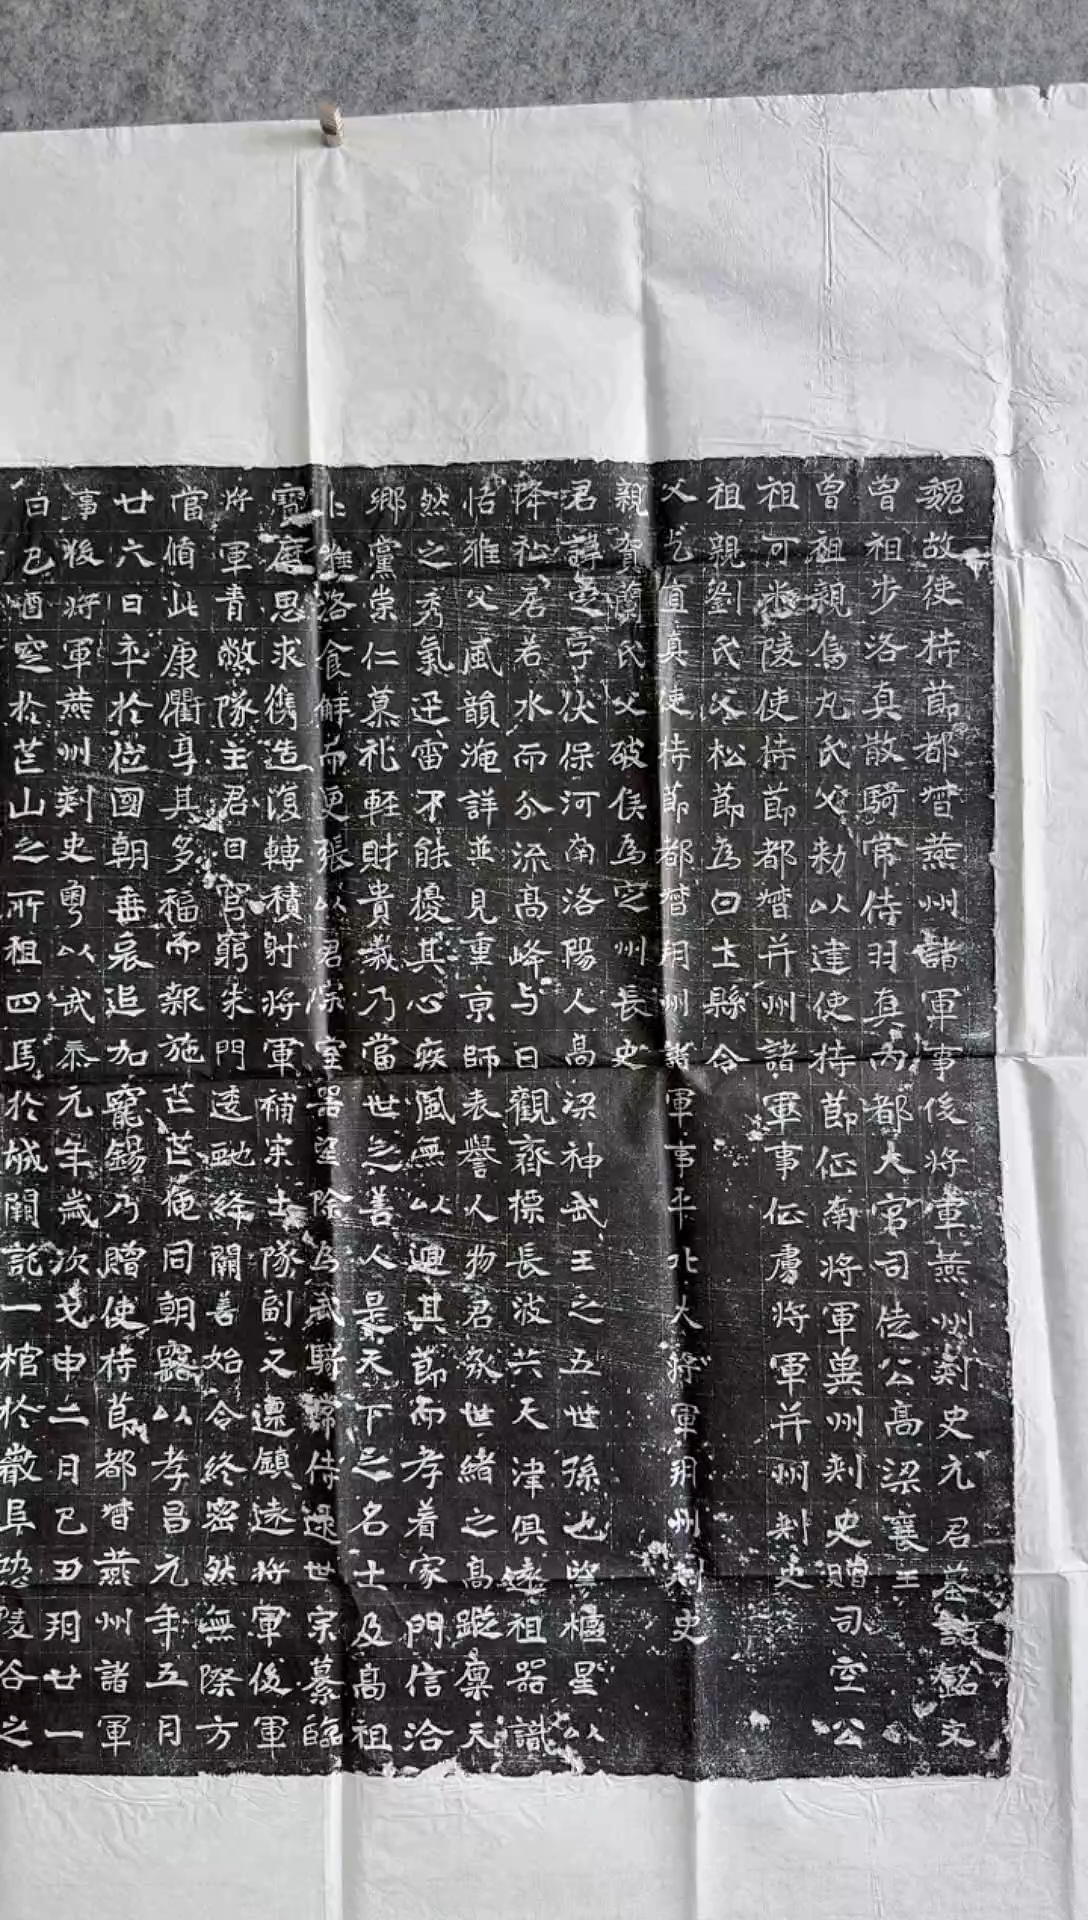 魏故使持節都督燕州諸軍事後將軍燕州刺史元君墓誌銘文
曾祖步洛真散騎常侍羽真內都大官司徒公高梁襄王
曾祖親烏丸氏父勑以建使持節征南將軍冀州刺史贈司空公
祖可悉陵使持節都督并州諸軍事征虜將軍并州刺史
祖親劉氏父松節為白土縣令
父乞直真使持節都督朔州諸軍事平北大將軍朔州刺史
親賀蘭氏父破侯為定州長史
君諱字伏保河南洛陽人高梁神武王之五世孫也啓樞星以
降祉居若水而分流高峰与日觀齊標長波共天津俱遠祖器識
恬雅父風韻淹詳並見重京師表譽人物君承世緒之高蹤稟天
然之秀氣迅雷不能擾其心疾風無以迴其節而孝着家門信洽
鄉黨崇仁慕礼輕財貴義乃當世之善人是天下之名士及高祖
卜惟洛食解而更張以君宗室器望除為武騎侍逮世宗纂臨
寶庭思求儁造復轉積射將軍補宋士隊副又遷鎮遠將軍後軍
將軍青隊主君日宮窮朱門遠絳闕善始令終密然無際方
當脩此康衢享其多福而報施芒芒俺同朝露以孝昌元年五月
廿六日卒於位國朝垂哀追加寵錫乃贈使持節都督燕州諸軍
事後將軍燕州刺史粵以武泰元年歲次戊申二月己丑朔廿一
日己酉窆於芒山之所祖四馬於城闉託一棺於巖阜恐陵谷之